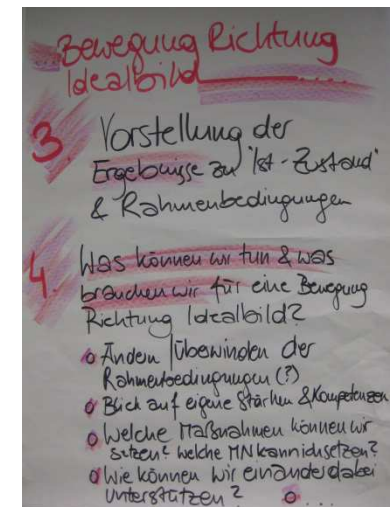 Bewegung Richtung
Idealbild....
3 Vorstellung der
Ergebnisse zu "Ist-Zustand"
& Rahmenbedingungen
4. Was können wir tun & was
brauchen wir für eine Bewegung
Richtung Idealbild?
o Ändern / Überwinden der
Rahmenbedingungen (?)
o Blick auf eigene Stärken & Kompetenzen
o Welche Maßnahmen können wir
setzen? Welche MN kann ich setzen?
o Wie können wir einander dabei
unterstützen? o ...